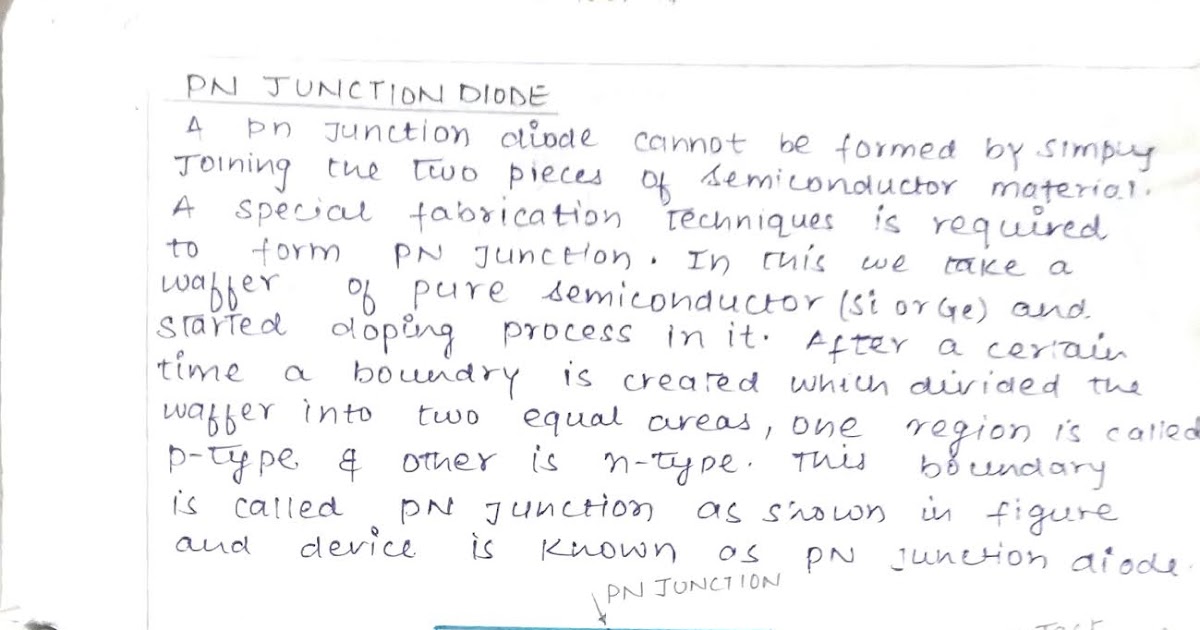 PN JUNCTION DIODE
A pn junction diode cannot be formed by simply
Joining the two pieces of semiconductor material.
A special fabrication techniques is required
to form PN Junction. In this we take a
waffer of pure semiconductor (Si or Ge) and
started doping process in it. After a certain
time a boundry is created which divided the
waffer into two equal areas, one region is called
p-type & other is n-type. This boundary
is called PN Junction as shown in figure
and device is known as PN Junction diode.
PN JUNCTION